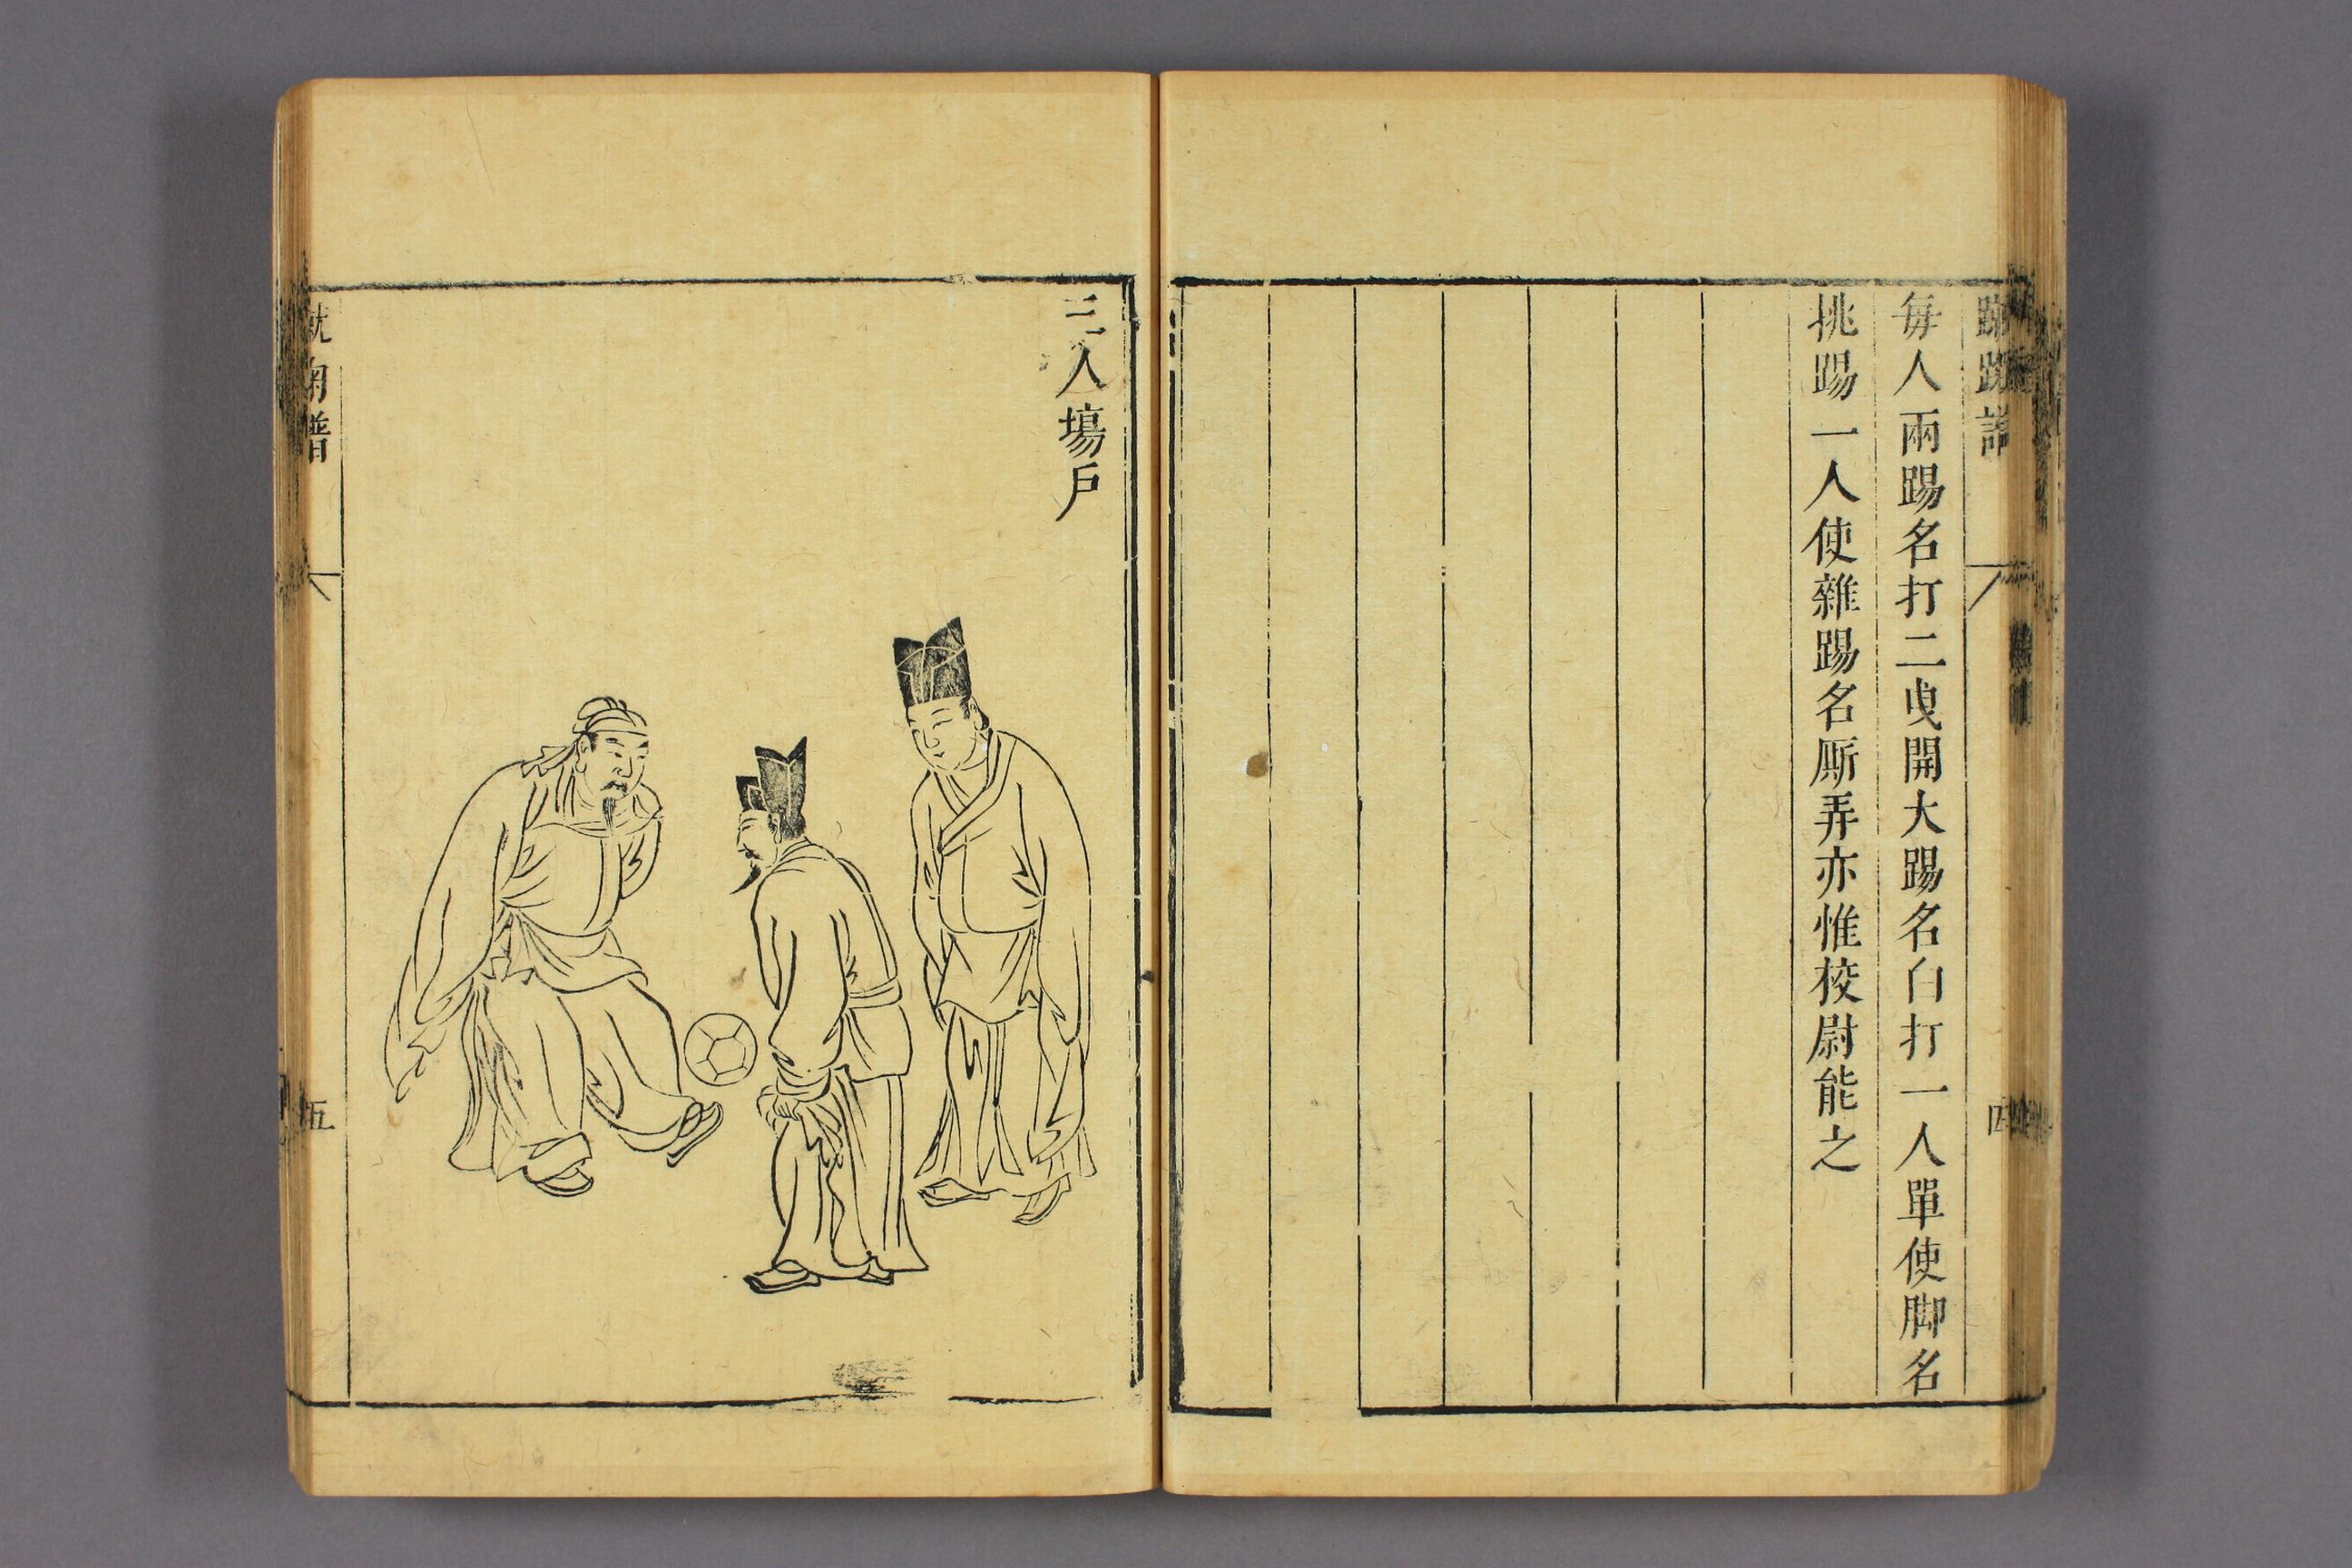 每人兩踢名打二曳開大踢名白打一人單使脚名
挑踢一人使雜踢名厮弄亦惟校尉能之
四
三人塲戶
蹴鞠譜
五